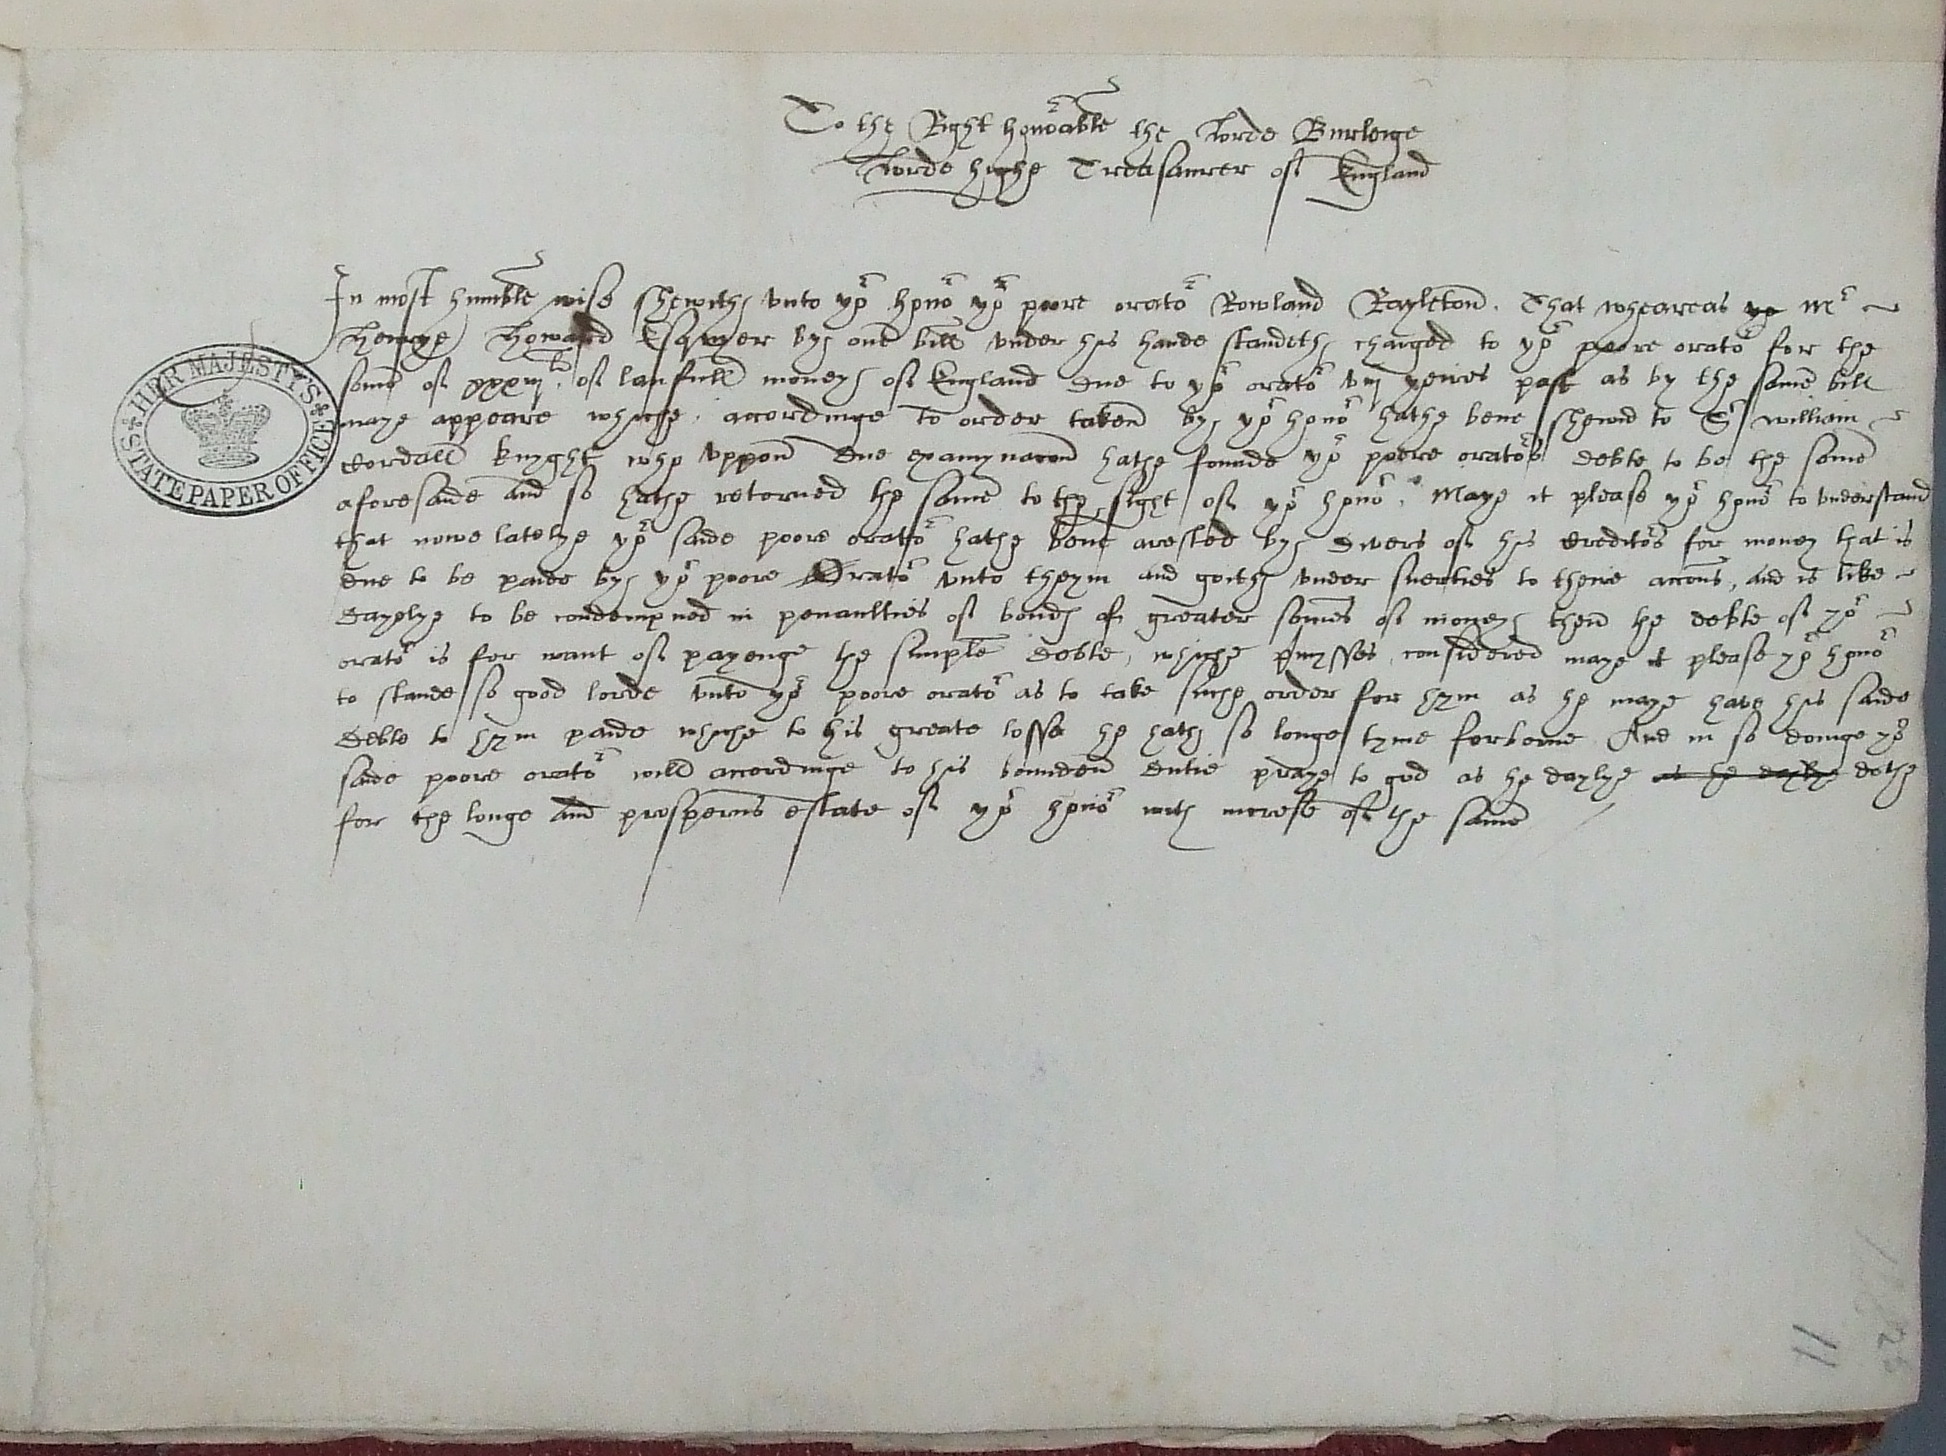 To the Right hono^r^able the Lorde Burleige
Lorde highe Treasaurer of England
In most humble wise shewith unto yo^r^ hono^r^ yo^r^ poore orato^r^ Rowland Rayleton. That wheareas ye M^r^
Henrye Howard Esqwyer by one bill under his hande standeth charged to yo^r^ poore orato^r^ for the
some of of laufull money of England due to yo^r^ orato^r^ viij yeires past as by the same bill
maye appeare whiche accordinge to order taken by yo^r^ hono^r^ hathe bene shewid to S^r^ william
Cordall knyght who uppon due examynacon hathe founde yo^r^ poore orato^rs^ debte to be the some
aforesaide and so hathe retorned the same to the sight of yo^r^ hono^r^. Maye it please yo^r^ hono^r^ to understand
that nowe latelye yo^r^ saide poore orato^r^ hathe bene arested by divers of his Credito^rs^ for money that is
due to be paide by yo^r^ poore Orato^r^ unto theym and goith under suerties to theire accons, and is like
dayelye to be condempned in penaulties of bonds of greater somes of money then the debte of yo^r^
orato^r^ is for want of payenge the simple debte, whiche pmysses considered maye it please yo^r^ hono^r^
to stande so good lorde unto yo^r^ poore orato^r^ as to take suche order for hym as he maye have his saide
debte to hym paide whiche to his greate losse he hath so longe tyme forborne And in so doinge yo^r^
saide poore orato^r^ will accordinge to his bounden dutie praye to god as he daylye as he daylye dothe
for the longe and prosperus estate of yo^r^ hono^r^ with increse of the same
HER MAJESTY'S
STATE PAPER OFFICE
11